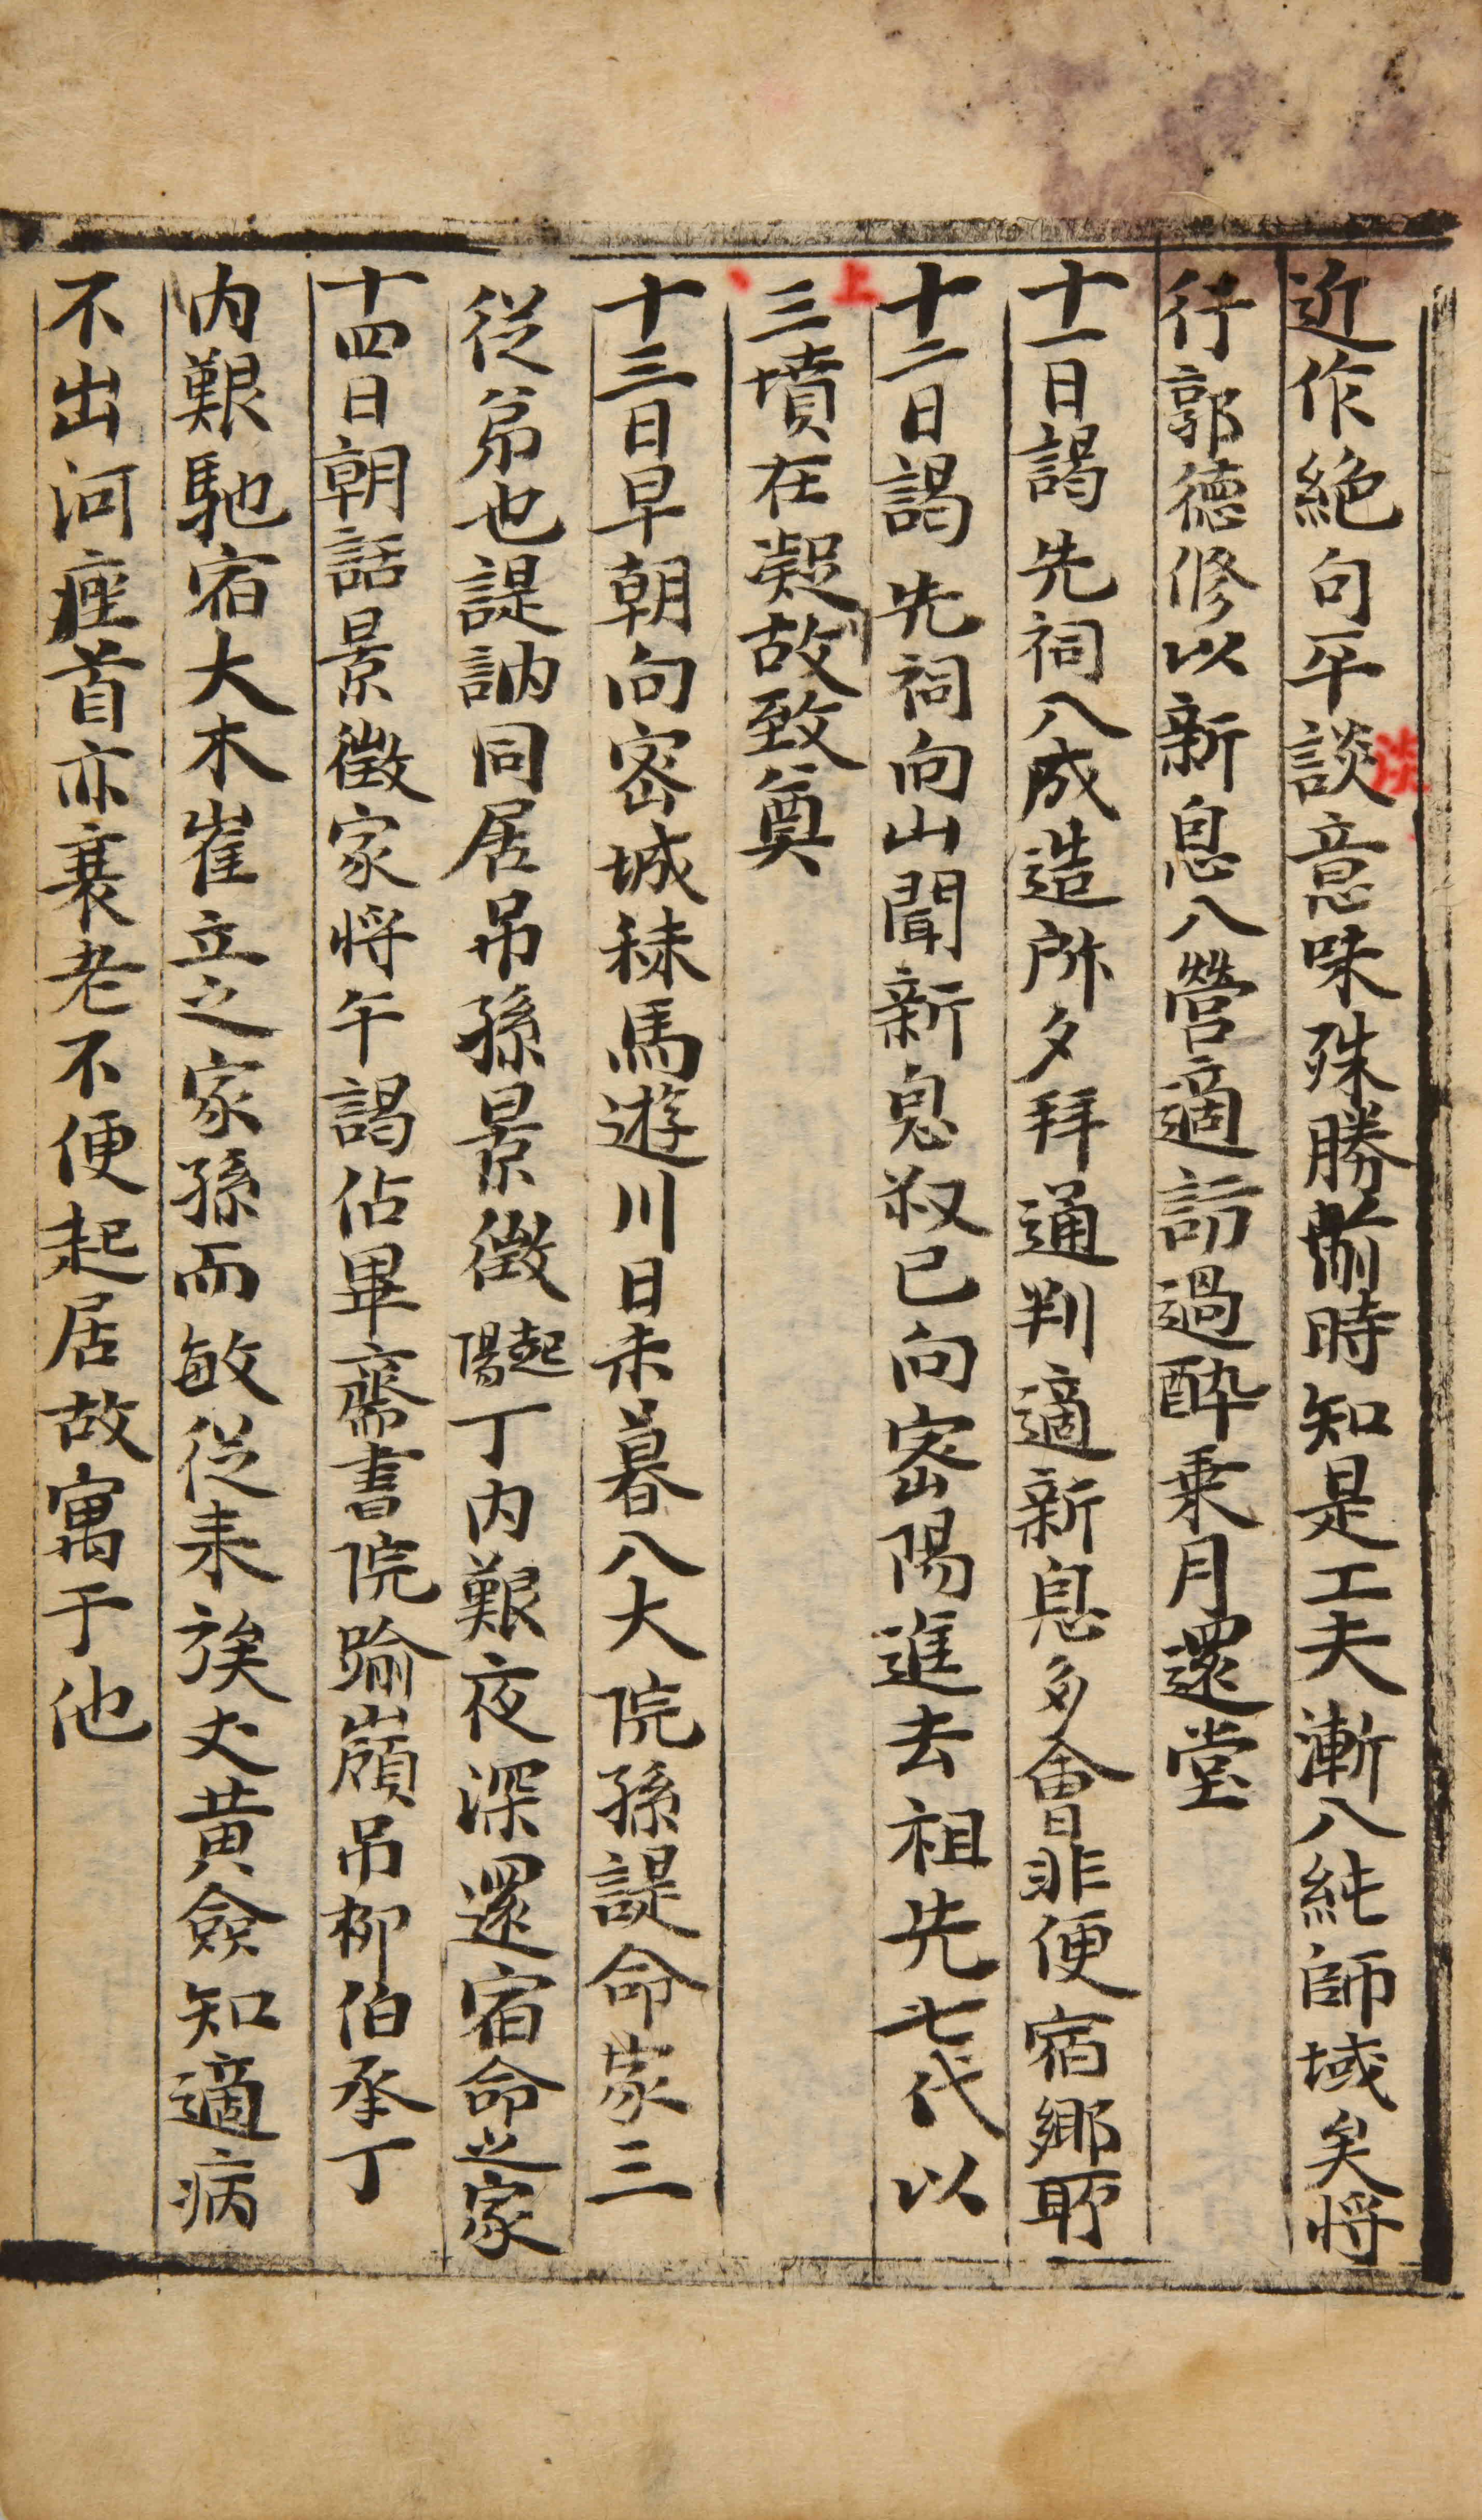 近作絶句平談意味殊勝前時知是工夫漸入純師域矣将
淡
行郭德修以新息入營適訪過酔乗月還堂
十一日謁先祠入成造所夕拜通判適新息多會非便宿鄉耶
十二日謁先祠向山聞新息叔已向密陽進去祖先七代以
上
三墳在凝故致奠
十三日早朝向密城秣馬遊川日未暮入大院孫諟命家三
従弟也諟訥同居吊孫景徵起陽丁内艱夜深還宿命之家
十四日朝話景徵家将午謁佔畢齋書院踰嶺吊柳伯承丁
内艱馳宿大木崔立之家孫而敏従来族丈黄僉知適病
不出河座首亦衰老不便起居故寓于他